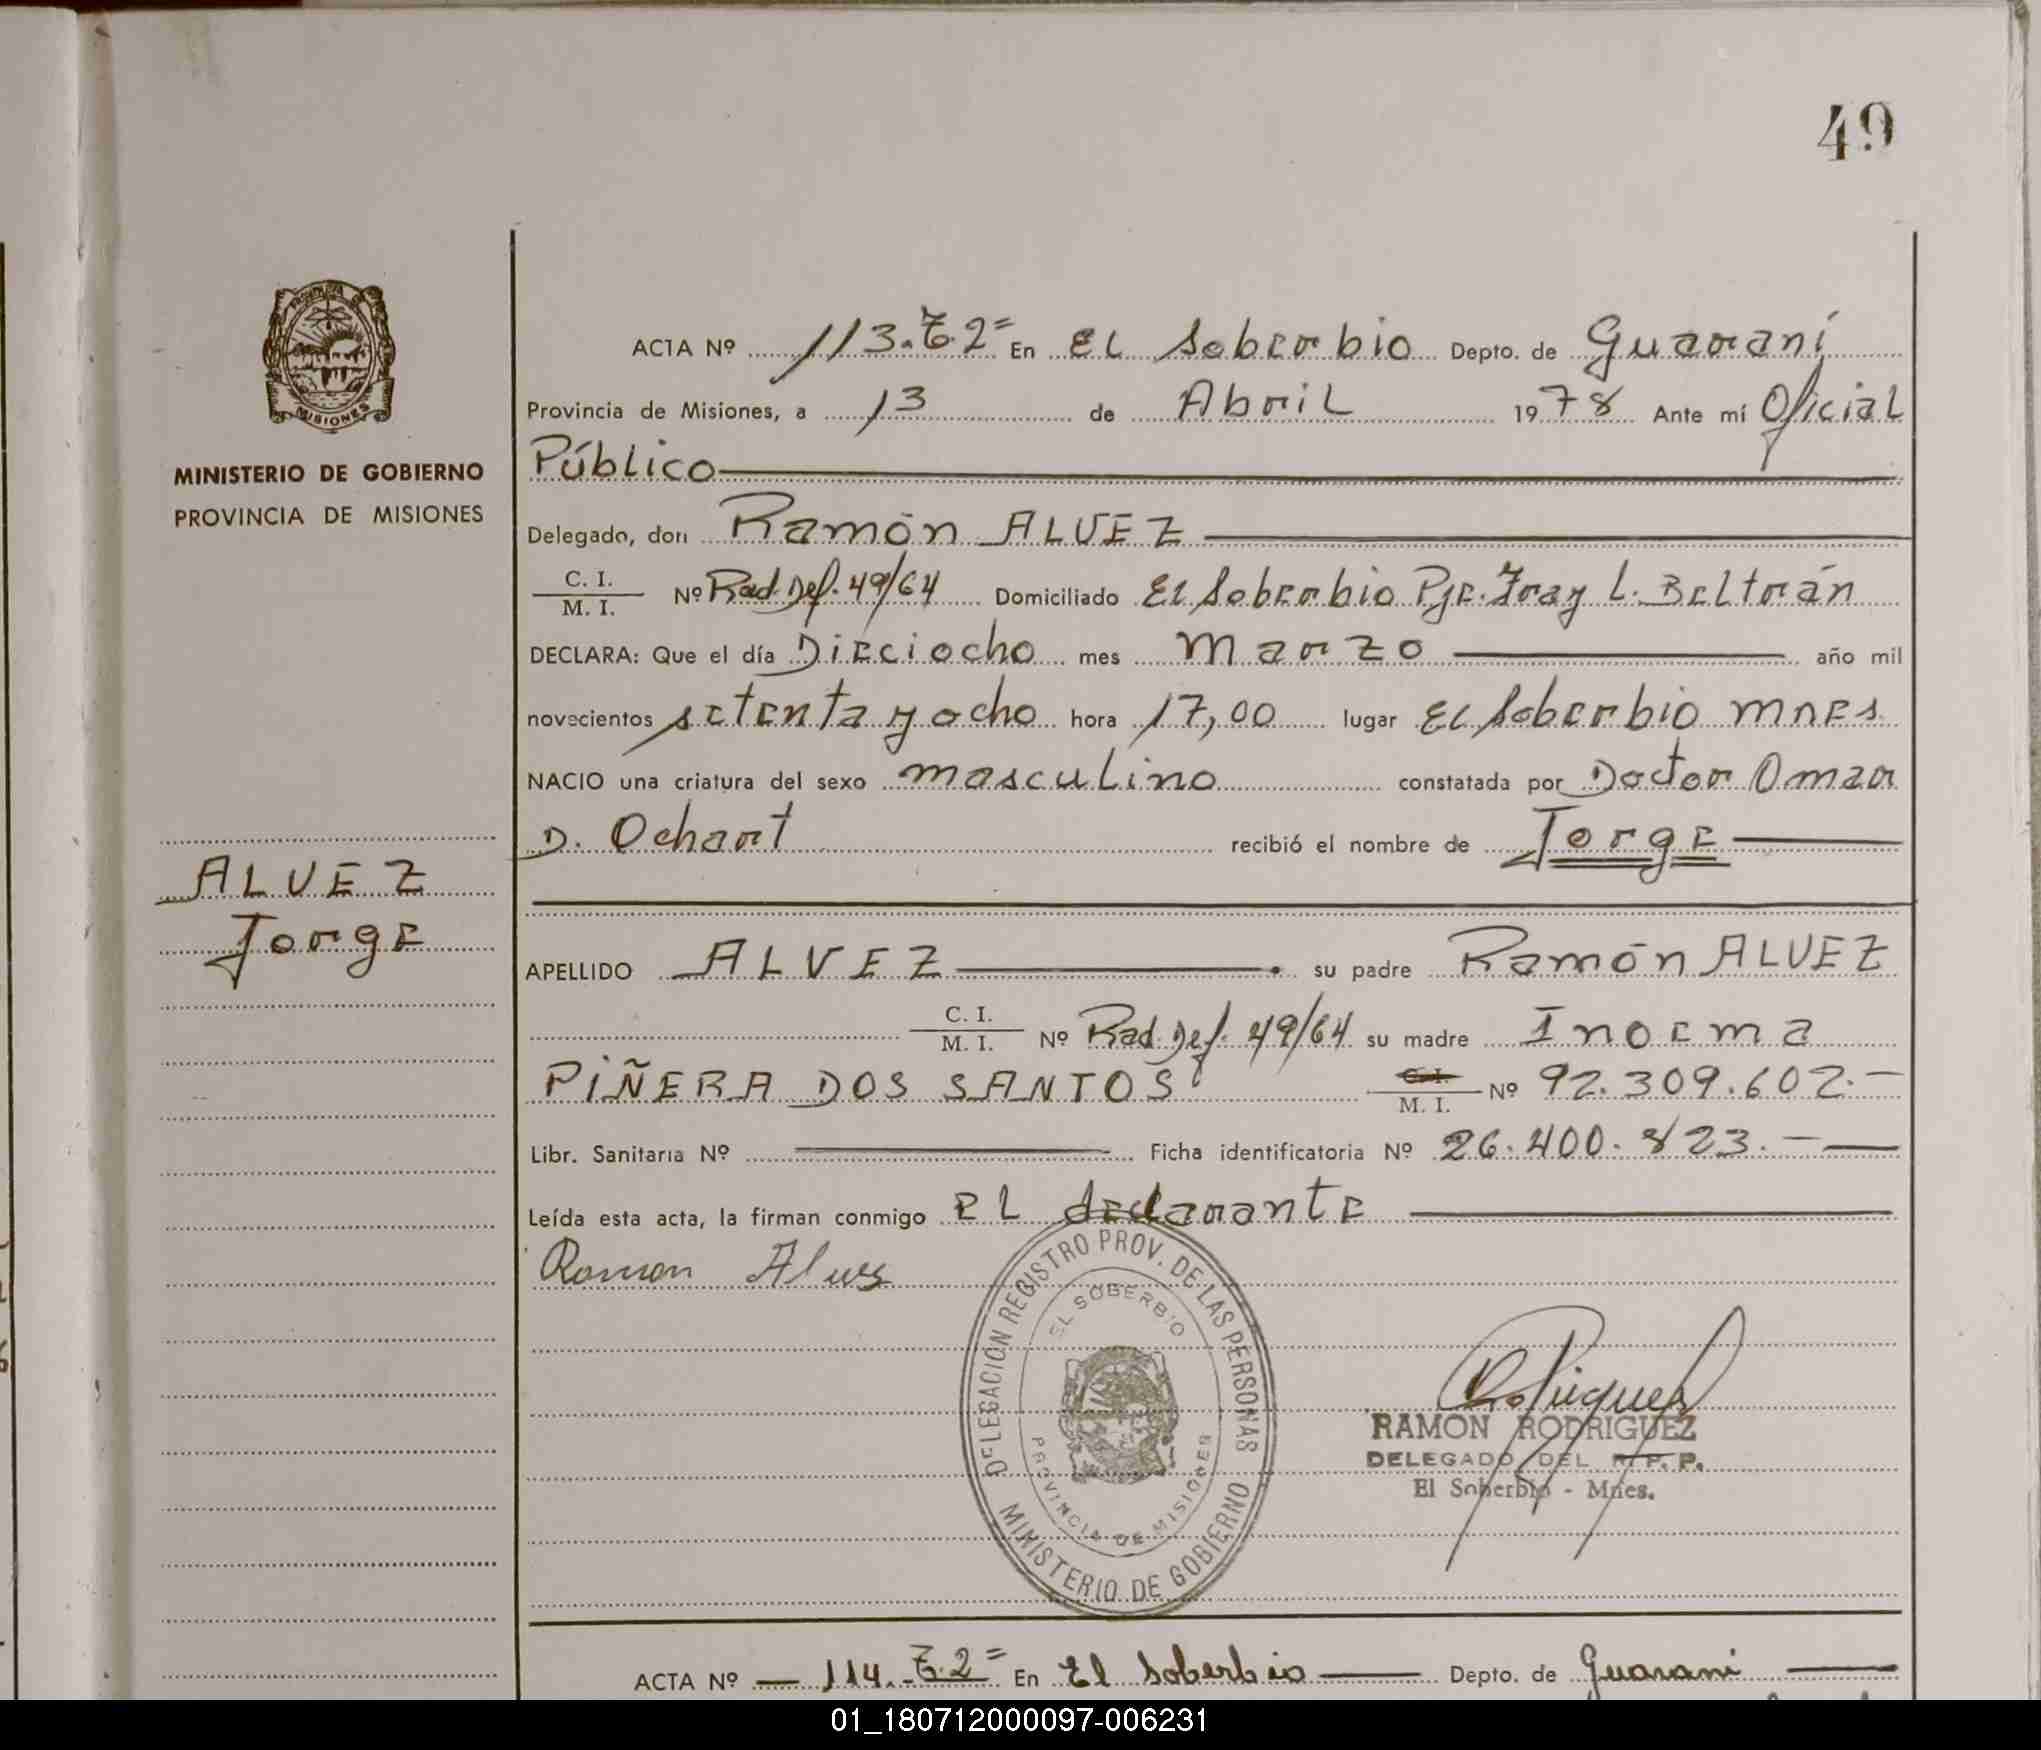 49
ACTA Nº 113.T.2= En El Soberbio Depto. de Guaraní
Provincia de Misiones, a 13 de Abril 1978 Ante mí Oficial
Público
MINISTERIO DE GOBIERNO
PROVINCIA DE MISIONES
Delegado, don Ramón ALVEZ
C. I.
M. I. Nº Rad. Def. 49/64 Domiciliado El Soberbio Pje. Fray L. Beltrán
DECLARA: Que el día Dieciocho mes Marzo año mil
novecientos setenta y ocho hora 17,00 lugar El Soberbio Mnes
NACIO una criatura del sexo masculino constatada por Doctor Omar
D. Ochart recibió el nombre de Jorge
ALVEZ
Jorge
APELLIDO ALVEZ su padre Ramón ALVEZ
C. I.
M. I. Nº Rad. Def. 49/64 su madre Inoema
PIÑERA DOS SANTOS C. I.
M. I. Nº 92.309.602.-
Libr. Sanitaria Nº Ficha identificatoria Nº 26.400.823.-
Leída esta acta, la firman conmigo el declarante
Ramon Alves
DELEGACION REGISTRO PROV. DE LAS PERSONAS
EL SOBERBIO
PROVINCIA DE MISIONES
MINISTERIO DE GOBIERNO
RAMON RODRIGUEZ
DELEGADO DEL R.P.P.
El Soberbio - Mnes.
ACTA Nº 114.T.2= En El Soberbio Depto. de Guarani
01_180712000097-006231